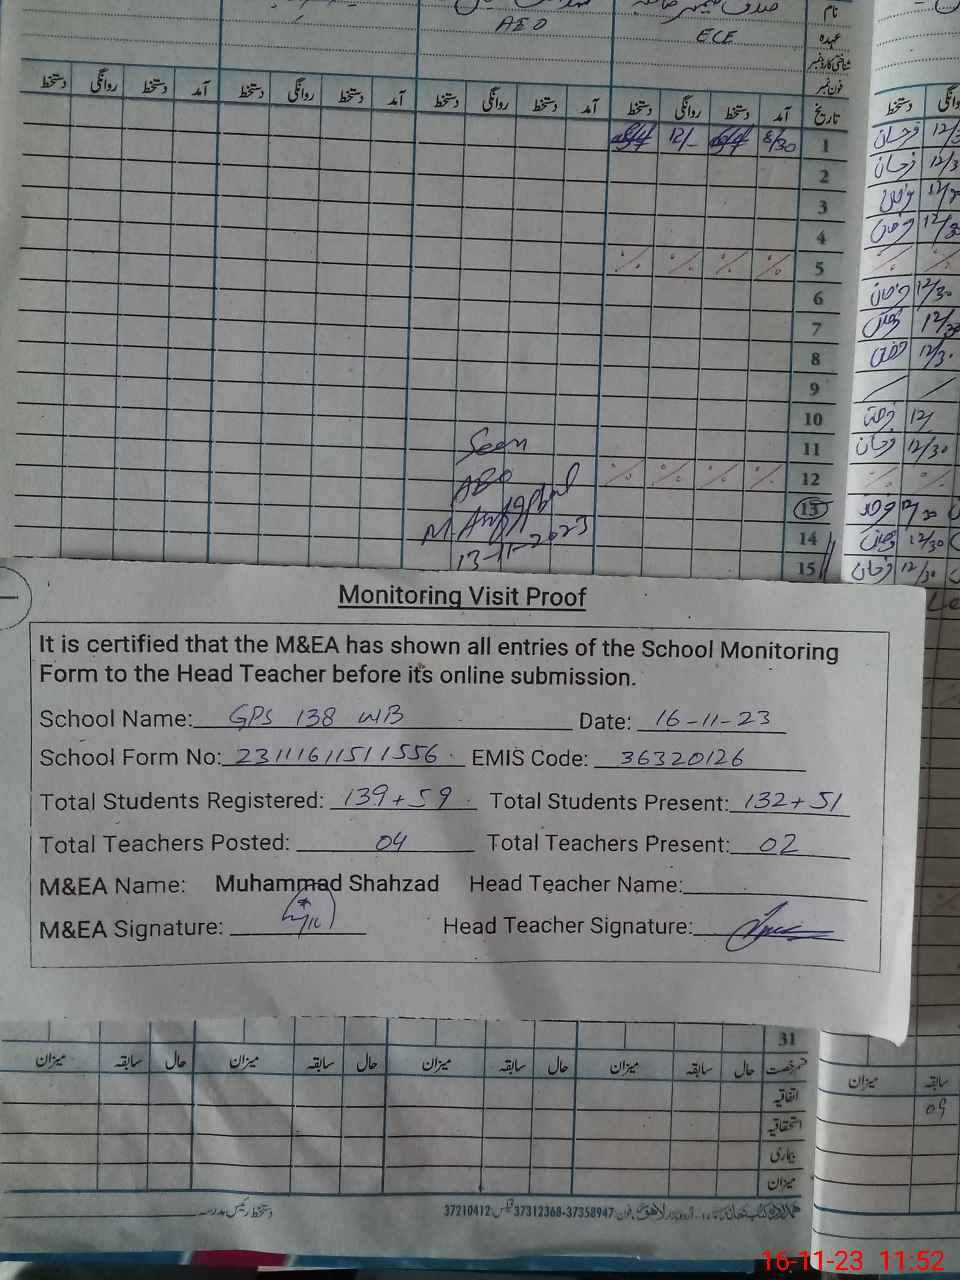 نام
عہدہ AEO ECE
شناختی کارڈ نمبر
فون نمبر
تاریخ آمد دستخط روانگی دستخط آمد دستخط روانگی دستخط آمد دستخط روانگی دستخط آمد دستخط روانگی دستخط
دستخط
1 8/30 12/-
فرحان
2
فرحان 12/3
3
4
5 ٪ ٪ ٪ ٪
6
12/30
7
12/30
8
12/30
9
10
12/
11
فرحان 12/30
12 ٪ ٪ ٪ ٪
13
12/30
14
12/30
15
فرحان 12/30
Seen
AEO
13-11-2023
Monitoring Visit Proof
It is certified that the M&EA has shown all entries of the School Monitoring
Form to the Head Teacher before its online submission.
School Name: GPS 138 WB Date: 16-11-23
School Form No: 23111611511556 EMIS Code: 36320126
Total Students Registered: 139+59 Total Students Present: 132+51
Total Teachers Posted: 04 Total Teachers Present: 02
M&EA Name: Muhammad Shahzad Head Teacher Name:
M&EA Signature: Head Teacher Signature:
31
قسم رخصت حال سابقہ میزان حال سابقہ میزان حال سابقہ میزان حال سابقہ میزان
سابقہ میزان
اتفاقیہ
09
استحقاقیہ
بیماری
میزان
دستخط رئیس مدرسہ
اردو بازار لاہور فون: 37312368-37358947 فیکس 37210412
16-11-23 11:52